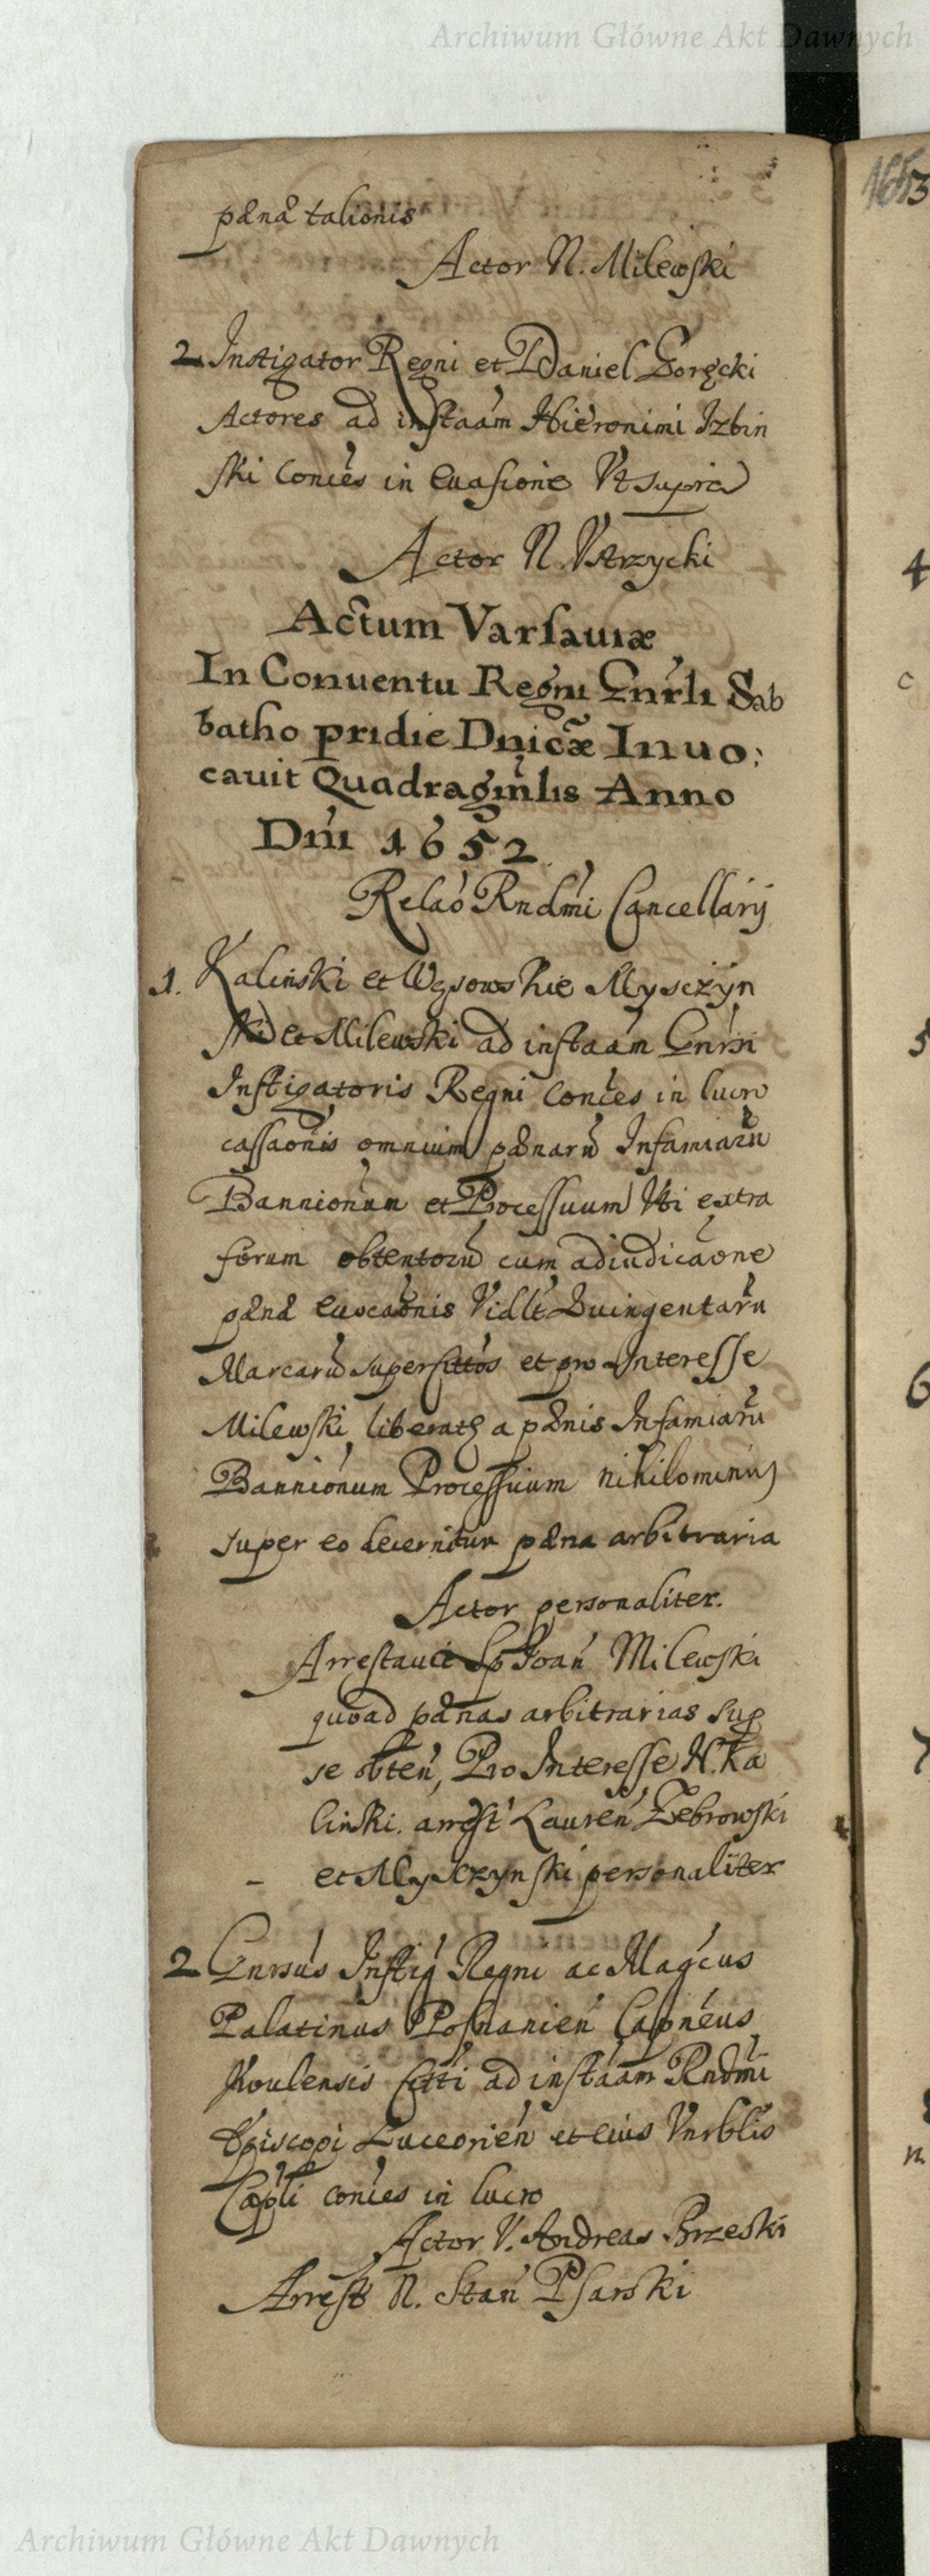 Archiwum Główne Akt Dawnych
pæna talionis
Actor N. Milewski
2 Instigator Regni et Daniel Goręcki
Actores ad instaãm Hieronimi Izbin
ski Conces in Euasione Vt supra
Actor N. Vstrzycki
Actum Varsauiæ
In Conuentu Regni Gnrli Sab
batho pridie Dnicæ Inuo:
cauit Quadragmlis Anno
Dni 1652
Relao Rndmi Cancellarij
1. Kalinski et Wąsowskie Mysczÿn
ski et Milewski ad instaam Gnrsi
Instigatoris Regni Conces in lucro
cassaonis omnium pænarũ Infamiarũ
Bannionum et Processuum Vti extra
forum obtentorũ cum adiudicaone
pæna euocaonis Vidlt Quingentarũ
Marcarũ super cittos et pro Interesse
Milewski liberatq a pænis Infamiarũ
Bannionum Processuum nihilominus
super eo decernitur pæna arbitraria
Actor personaliter.
Arrestauit Sp Joan Milewski
quoad pænas arbitrarias sup
se obten, Pro Interesse N. Ka
linski. arrest Lauren Zebrowski
- et Mysczynski personaliter
2 Gnrsus Instig Regni ac Magcus
Palatinus Posnanien Capneus
Koulensis citti ad instaam Rndmi
Episcopi Luceorien et eius Vnrblis
Capli conces in lucro
Actor V. Andreas Brzeski
Arrest N. Stan Psarski
1653
4
c
5
6
7
n
Archiwum Główne Akt Dawnych